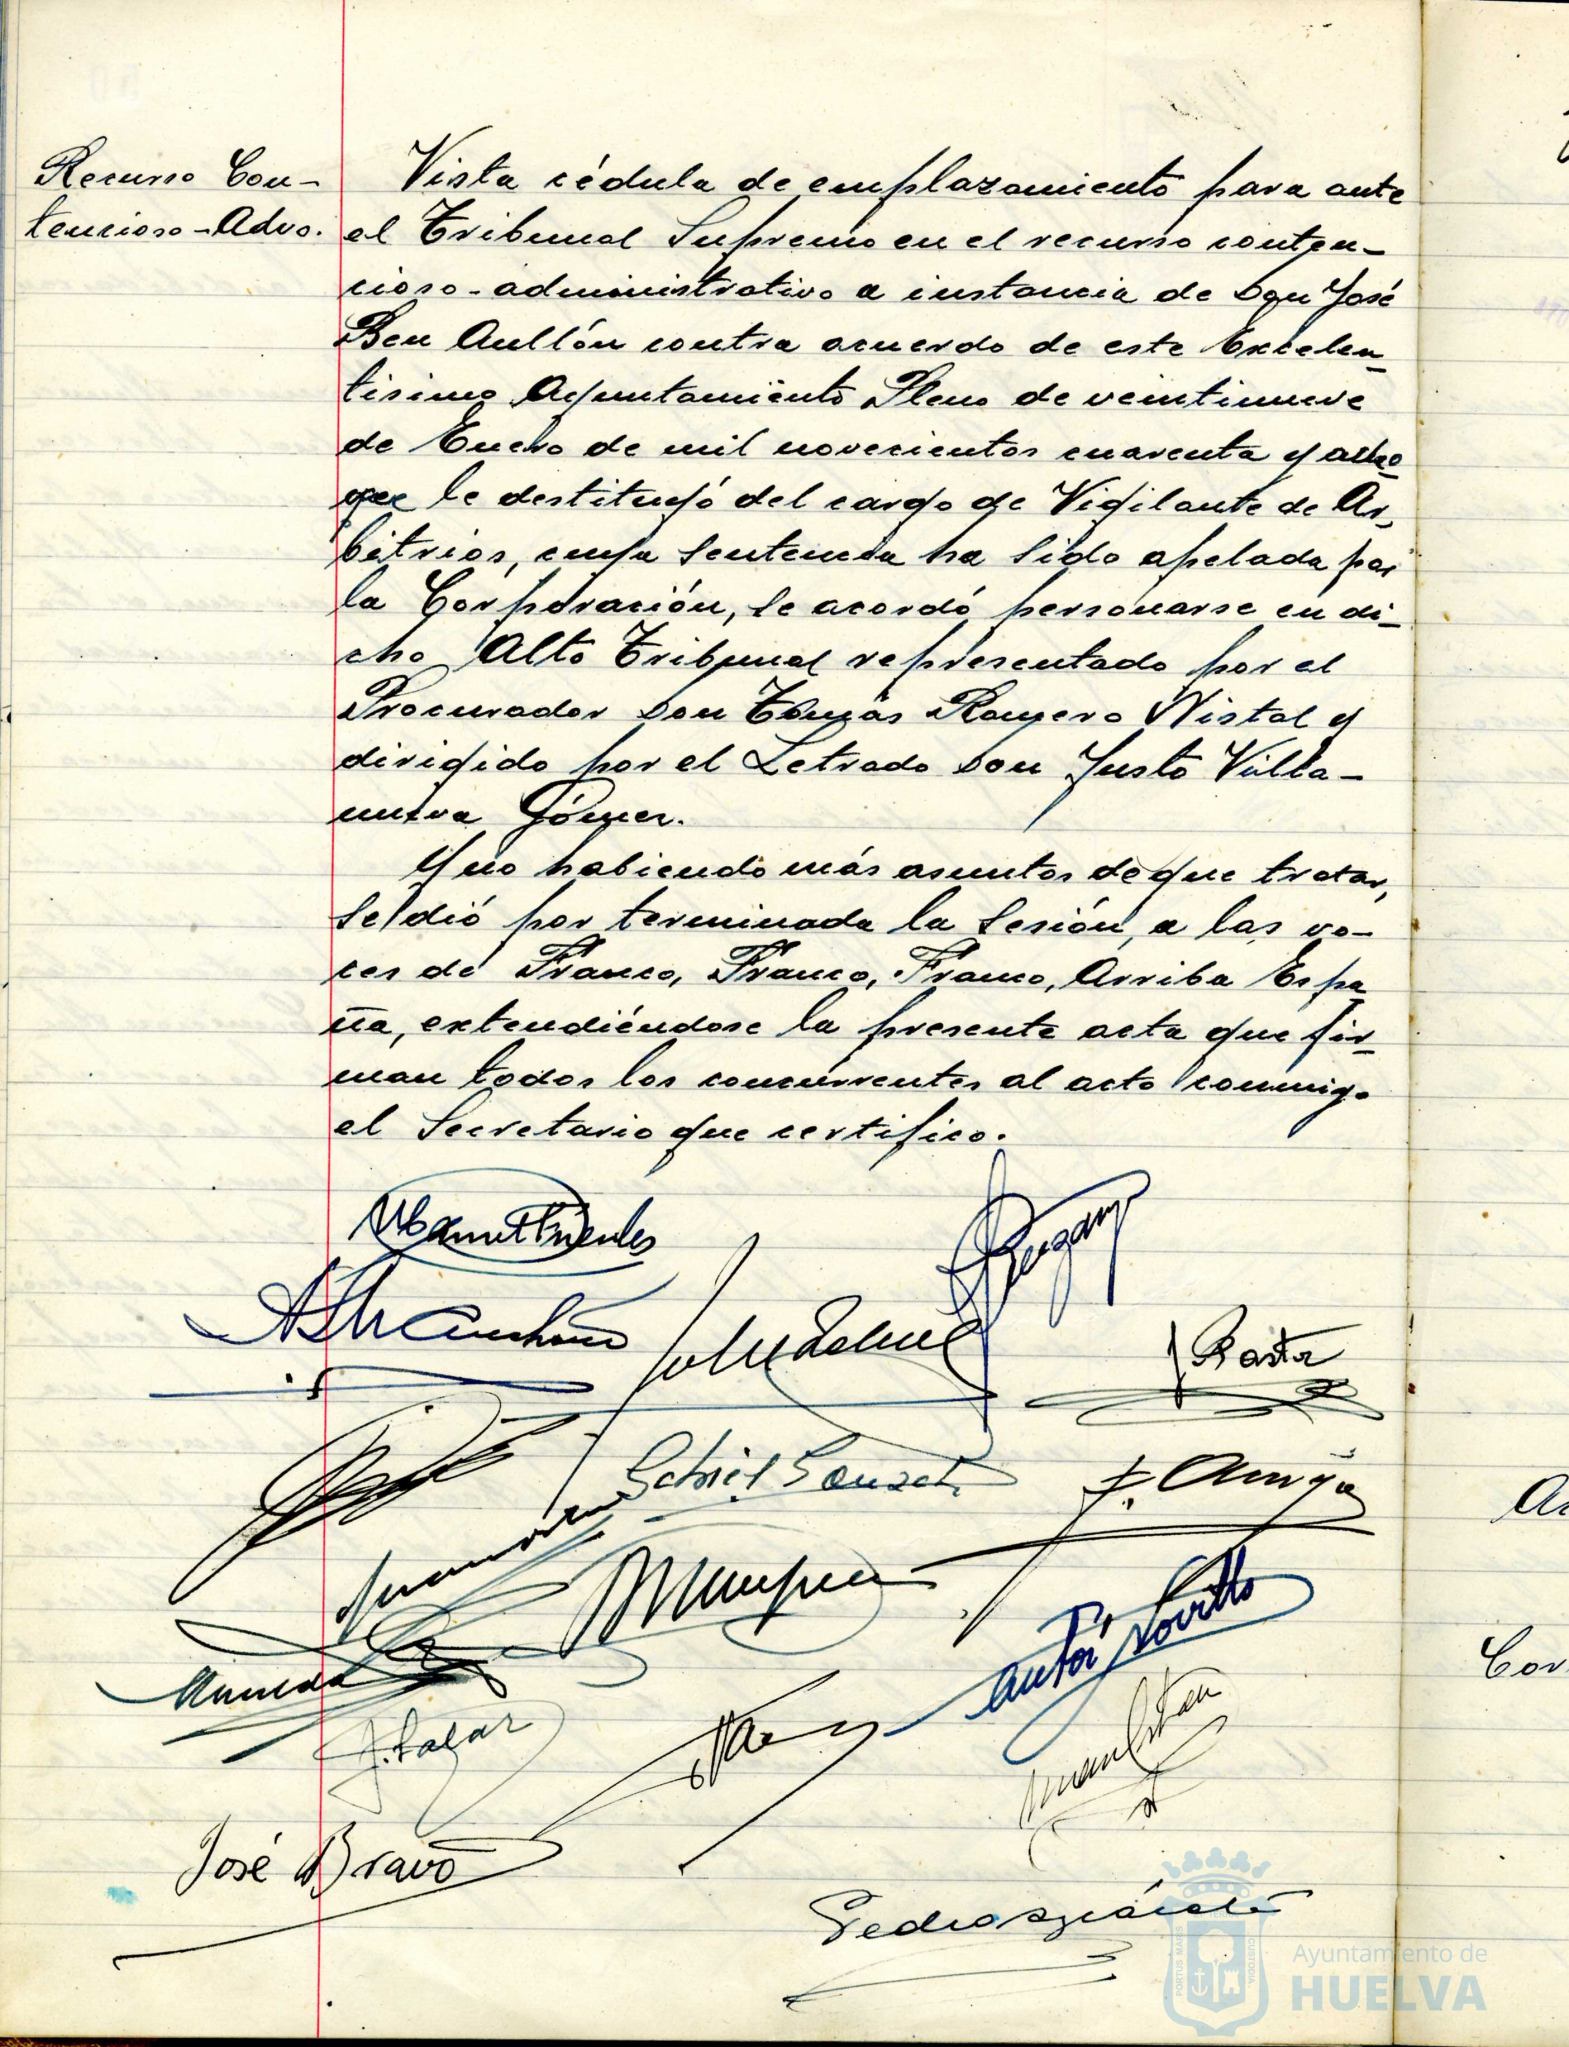 Recurso Con-
tencioso-Advo.
Vista cédula de emplazamiento para ante
el Tribunal Supremo en el recurso conten-
cioso-administrativo a instancia de Don José
Ben Aullón contra acuerdo de este Excelen-
tísimo Ayuntamiento Pleno de veintinueve
de Enero de mil novecientos cuarenta y ocho
que le destituyó del cargo de Vigilante de Ar-
bitrios, cuya sentencia ha sido apelada por
la Corporación, se acordó personarse en di-
cho Alto Tribunal representado por el
Procurador Don Tomás Romero Nistal y
dirigido por el Letrado Don Justo Villa-
nueva Gómez.
Y no habiendo más asuntos de que tratar,
se dió por terminada la sesión, a las vo-
ces de Franco, Franco, Franco, Arriba Espa
ña, extendiéndose la presente acta que fir-
man todos los concurrentes al acto conmigo
el Secretario que certifico.
J. Salazar
José Bravo
Ayuntamiento de
HUELVA